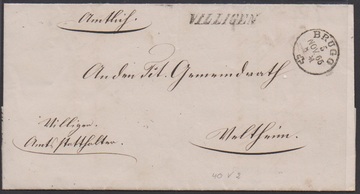 Amtlich.
VILLIGEN
BRUGG
5
NOV 65
An den Tit. Gemeindrath
Villiger
Amtsstatthalter.
Veltheim.
40 V 2